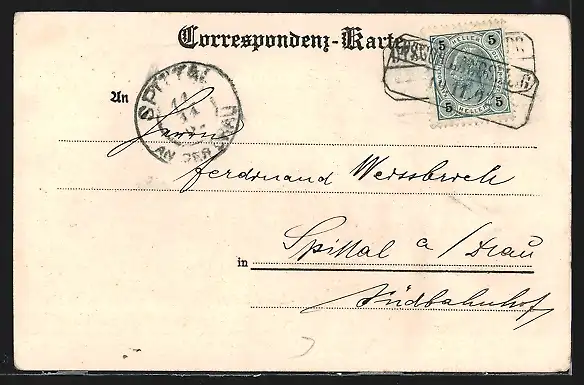 Correspondenz-Karte
5 HELLER 5
5 HELLER 5
SPITTAL
AN DER DRAU
An
Herrn
Ferdinand Weissbruch
Spittal a/Drau
in
Südbahnhof